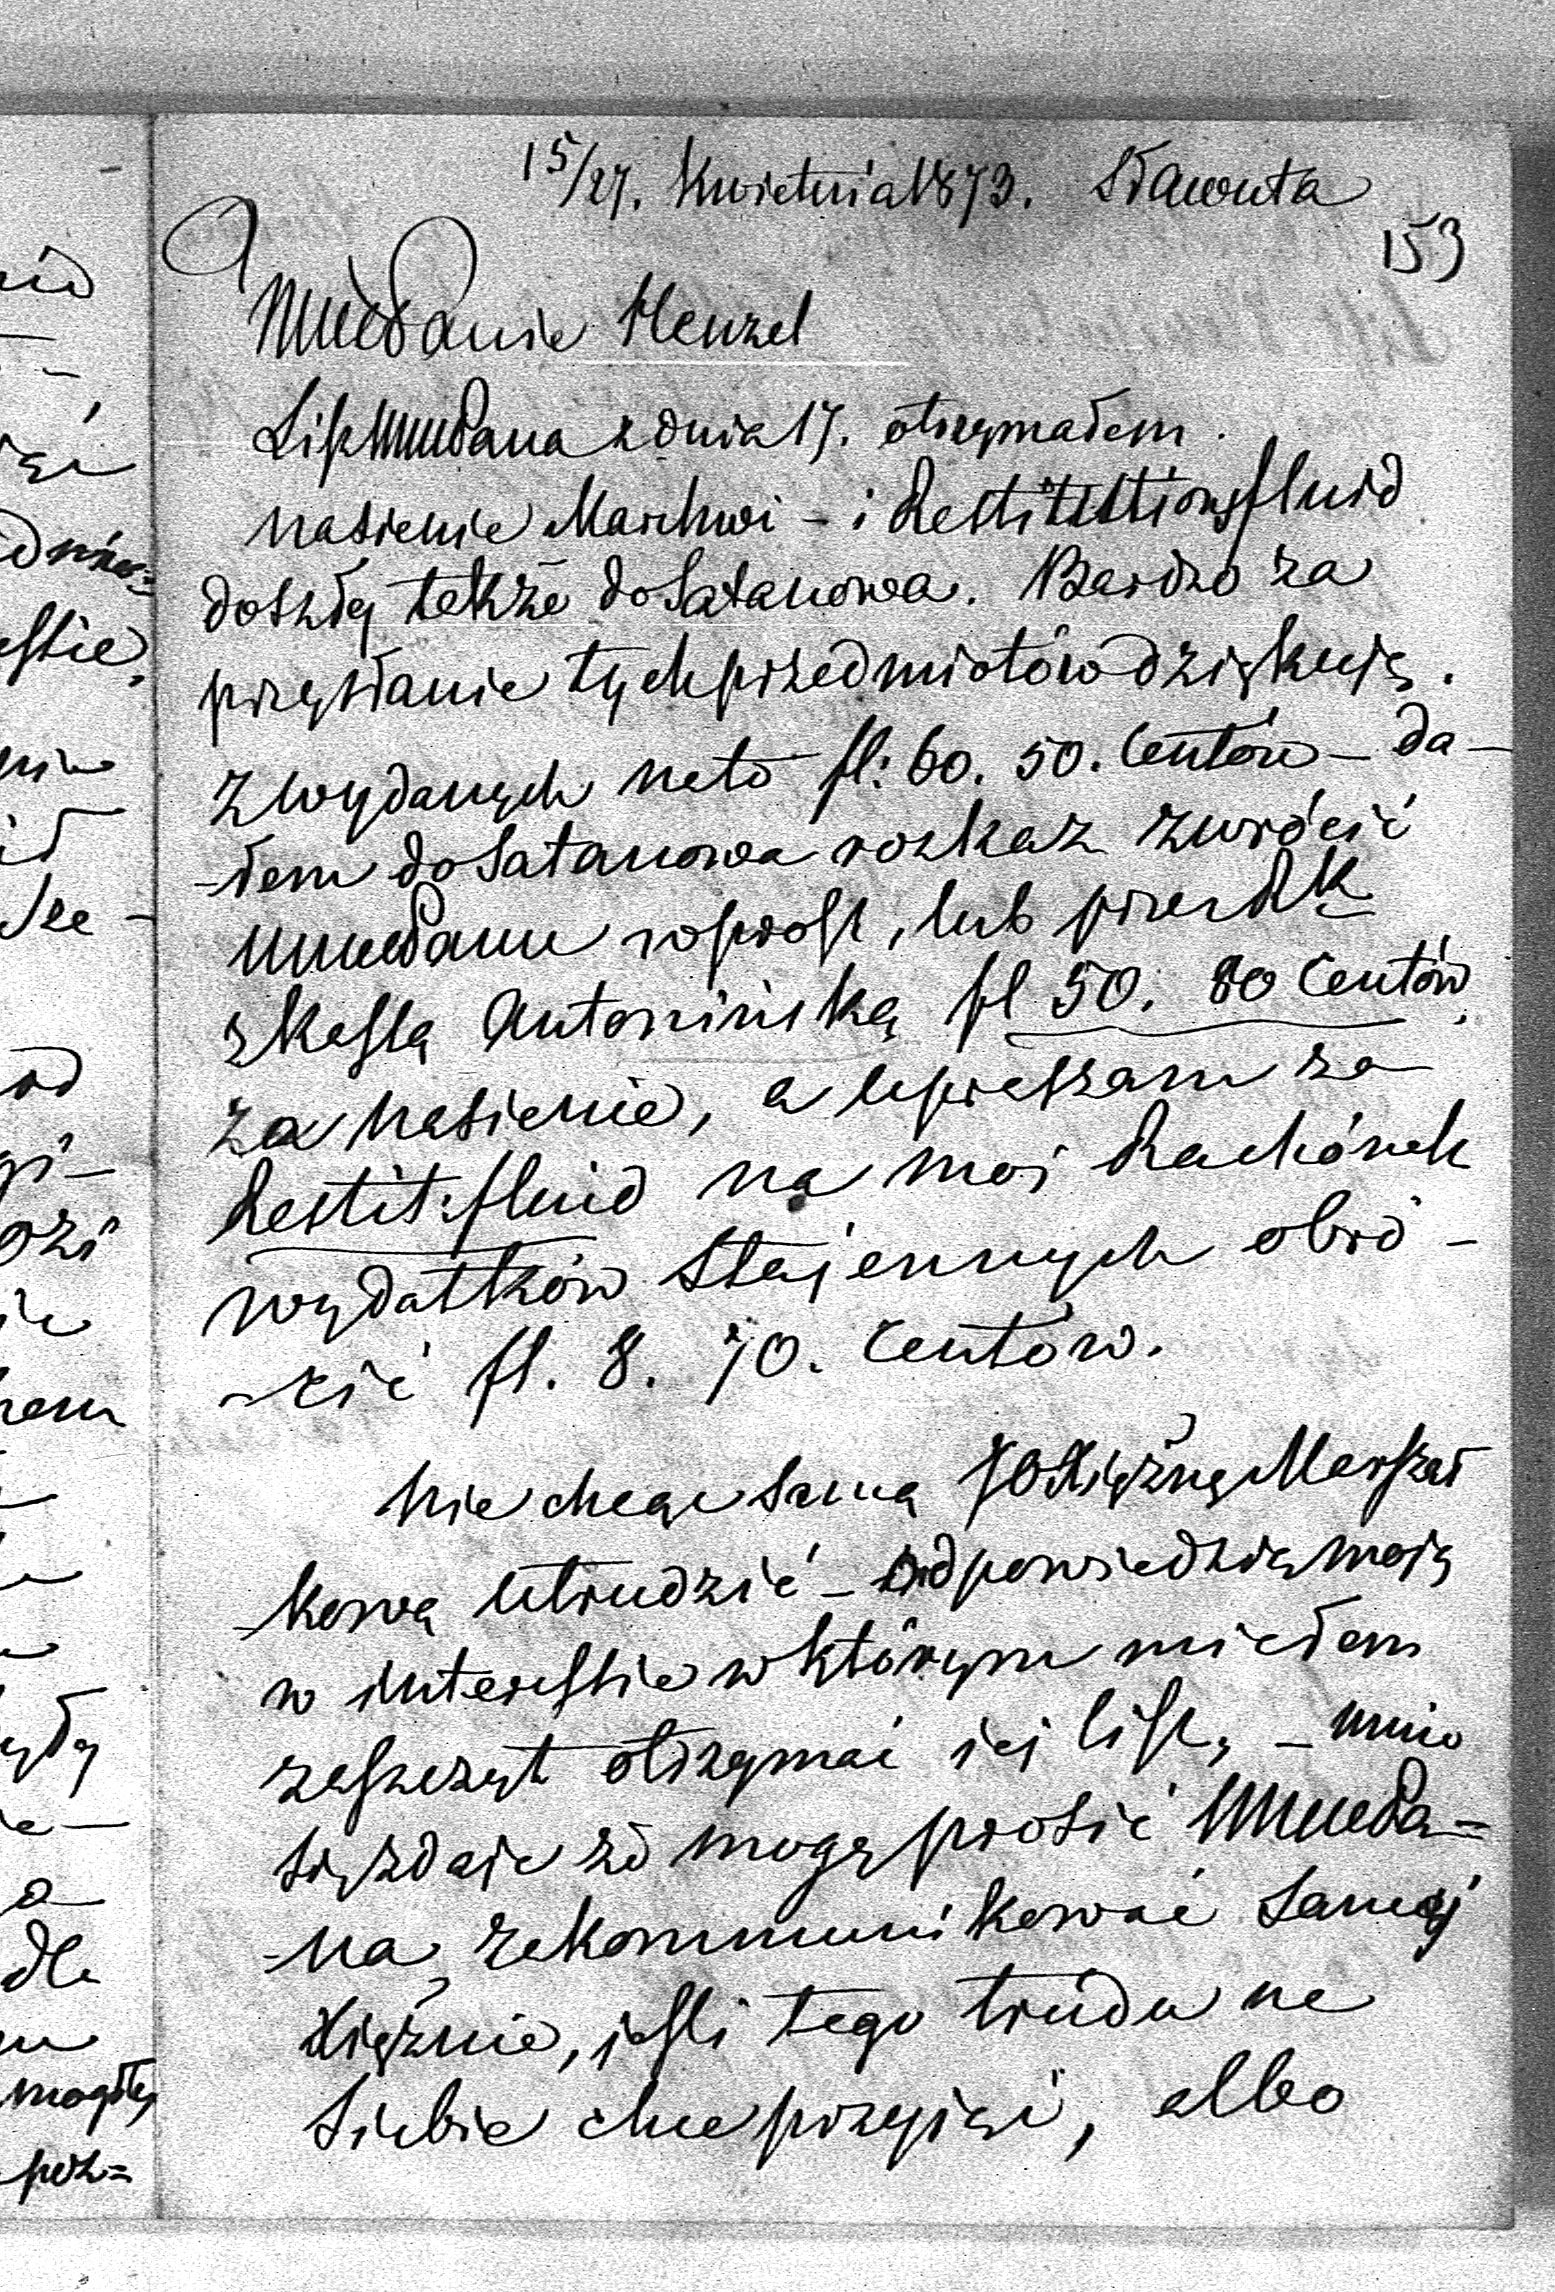 15/27. Kwietnia 1873. Sławuta
153
WMPanie Henzel
List WMPana z dnia 17. otrzymałem.
nasienie Marchwi – i Restitutionsfluid
doszły także do Satanowa. Bardzo za
przysłanie tych przedmiotów dziękuję.
Z wydanych na to fl: 60. 50. Centów – da–
–łem do Satanowa rozkaz zwrócić
WMPanu wprost, lub przez
z Kassą Antonińską fl 50. 80 Centów,
za nasienie, a upraszam za
Restit: fluid na moj Rachónek
wydatków Stajennych obró–
–cić fl. 8. 70. Centów.
Nie chcąc samą JO Xiężnę Marszał
–kową utrudzić – odpowiedzią moją
w interessie w którym miałem
zaszczyt otrzymać jej list, – mnie
się zdaje że mogę prosić WMPa=
–na, zakommunikować samej
Xiężnie, jeśli tego trudu na
siebie chce przyjąć, albo